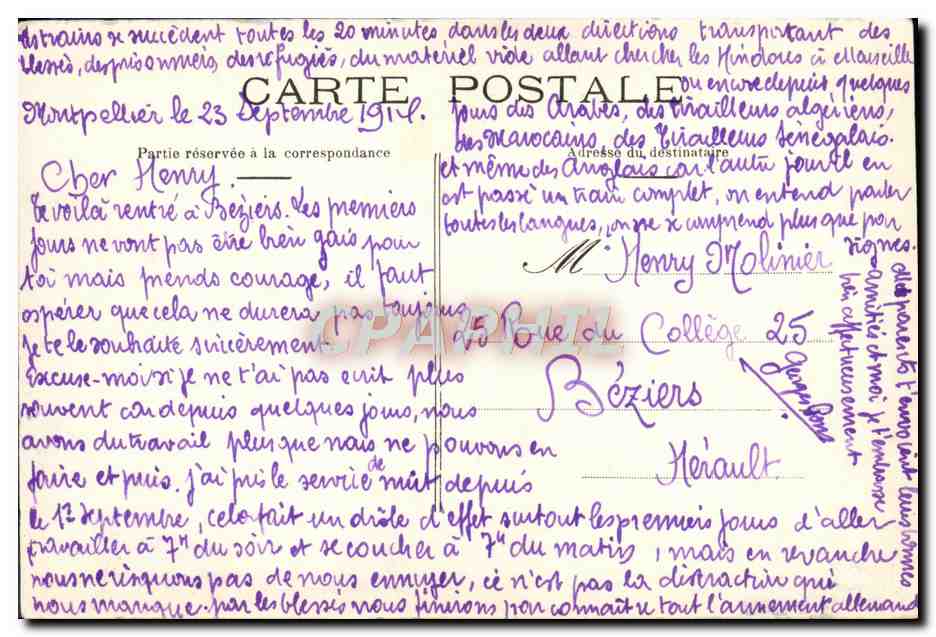 CARTE POSTALE
Partie réservée à la correspondance
Adresse du destinataire
Montpellier le 23 Septembre 1914.
Cher Henry
Te voilà rentré à Béziers. Les premiers
jours ne vont pas être bien gais pour
toi mais prends courage, il faut
espérer que cela ne durera pas toujours
Je te le souhaite sincèrement.
Excuse-moi si je ne t'ai pas écrit plus
souvent car depuis quelques jours, nous
avons du travail plus que nous ne pouvons en
faire et puis j'ai pris le service de nuit depuis
le 1er Septembre, cela fait un drôle d'effet surtout les premiers jours d'aller
travailler à 7h du soir et se coucher à 7h du matin, mais en revanche
nous ne risquons pas de nous ennuyer, ce n'est pas la distraction qui
nous manque. par les blessés nous finirons par connaître tout l'armement allemand
les trains se succèdent toutes les 20 minutes dans les deux directions transportant des
blessés, des prisonniers, des réfugiés, du matériel vide allant chercher les Hindous à Marseille
ou encore depuis quelques
jours des Arabes, des tirailleurs algériens,
des Marocains, des Tirailleurs Sénégalais.
et même des Anglais car l'autre jour il en
est passé un train complet, on entend parler
toutes les langues, on ne se comprend plus que par
signes.
Mes parents t'envoient leurs bonnes
amitiés et moi je t'embrasse
bien affectueusement
Georges
M Henry Molinier
25 Rue du Collège 25
Béziers
Hérault.
CPAPHIL